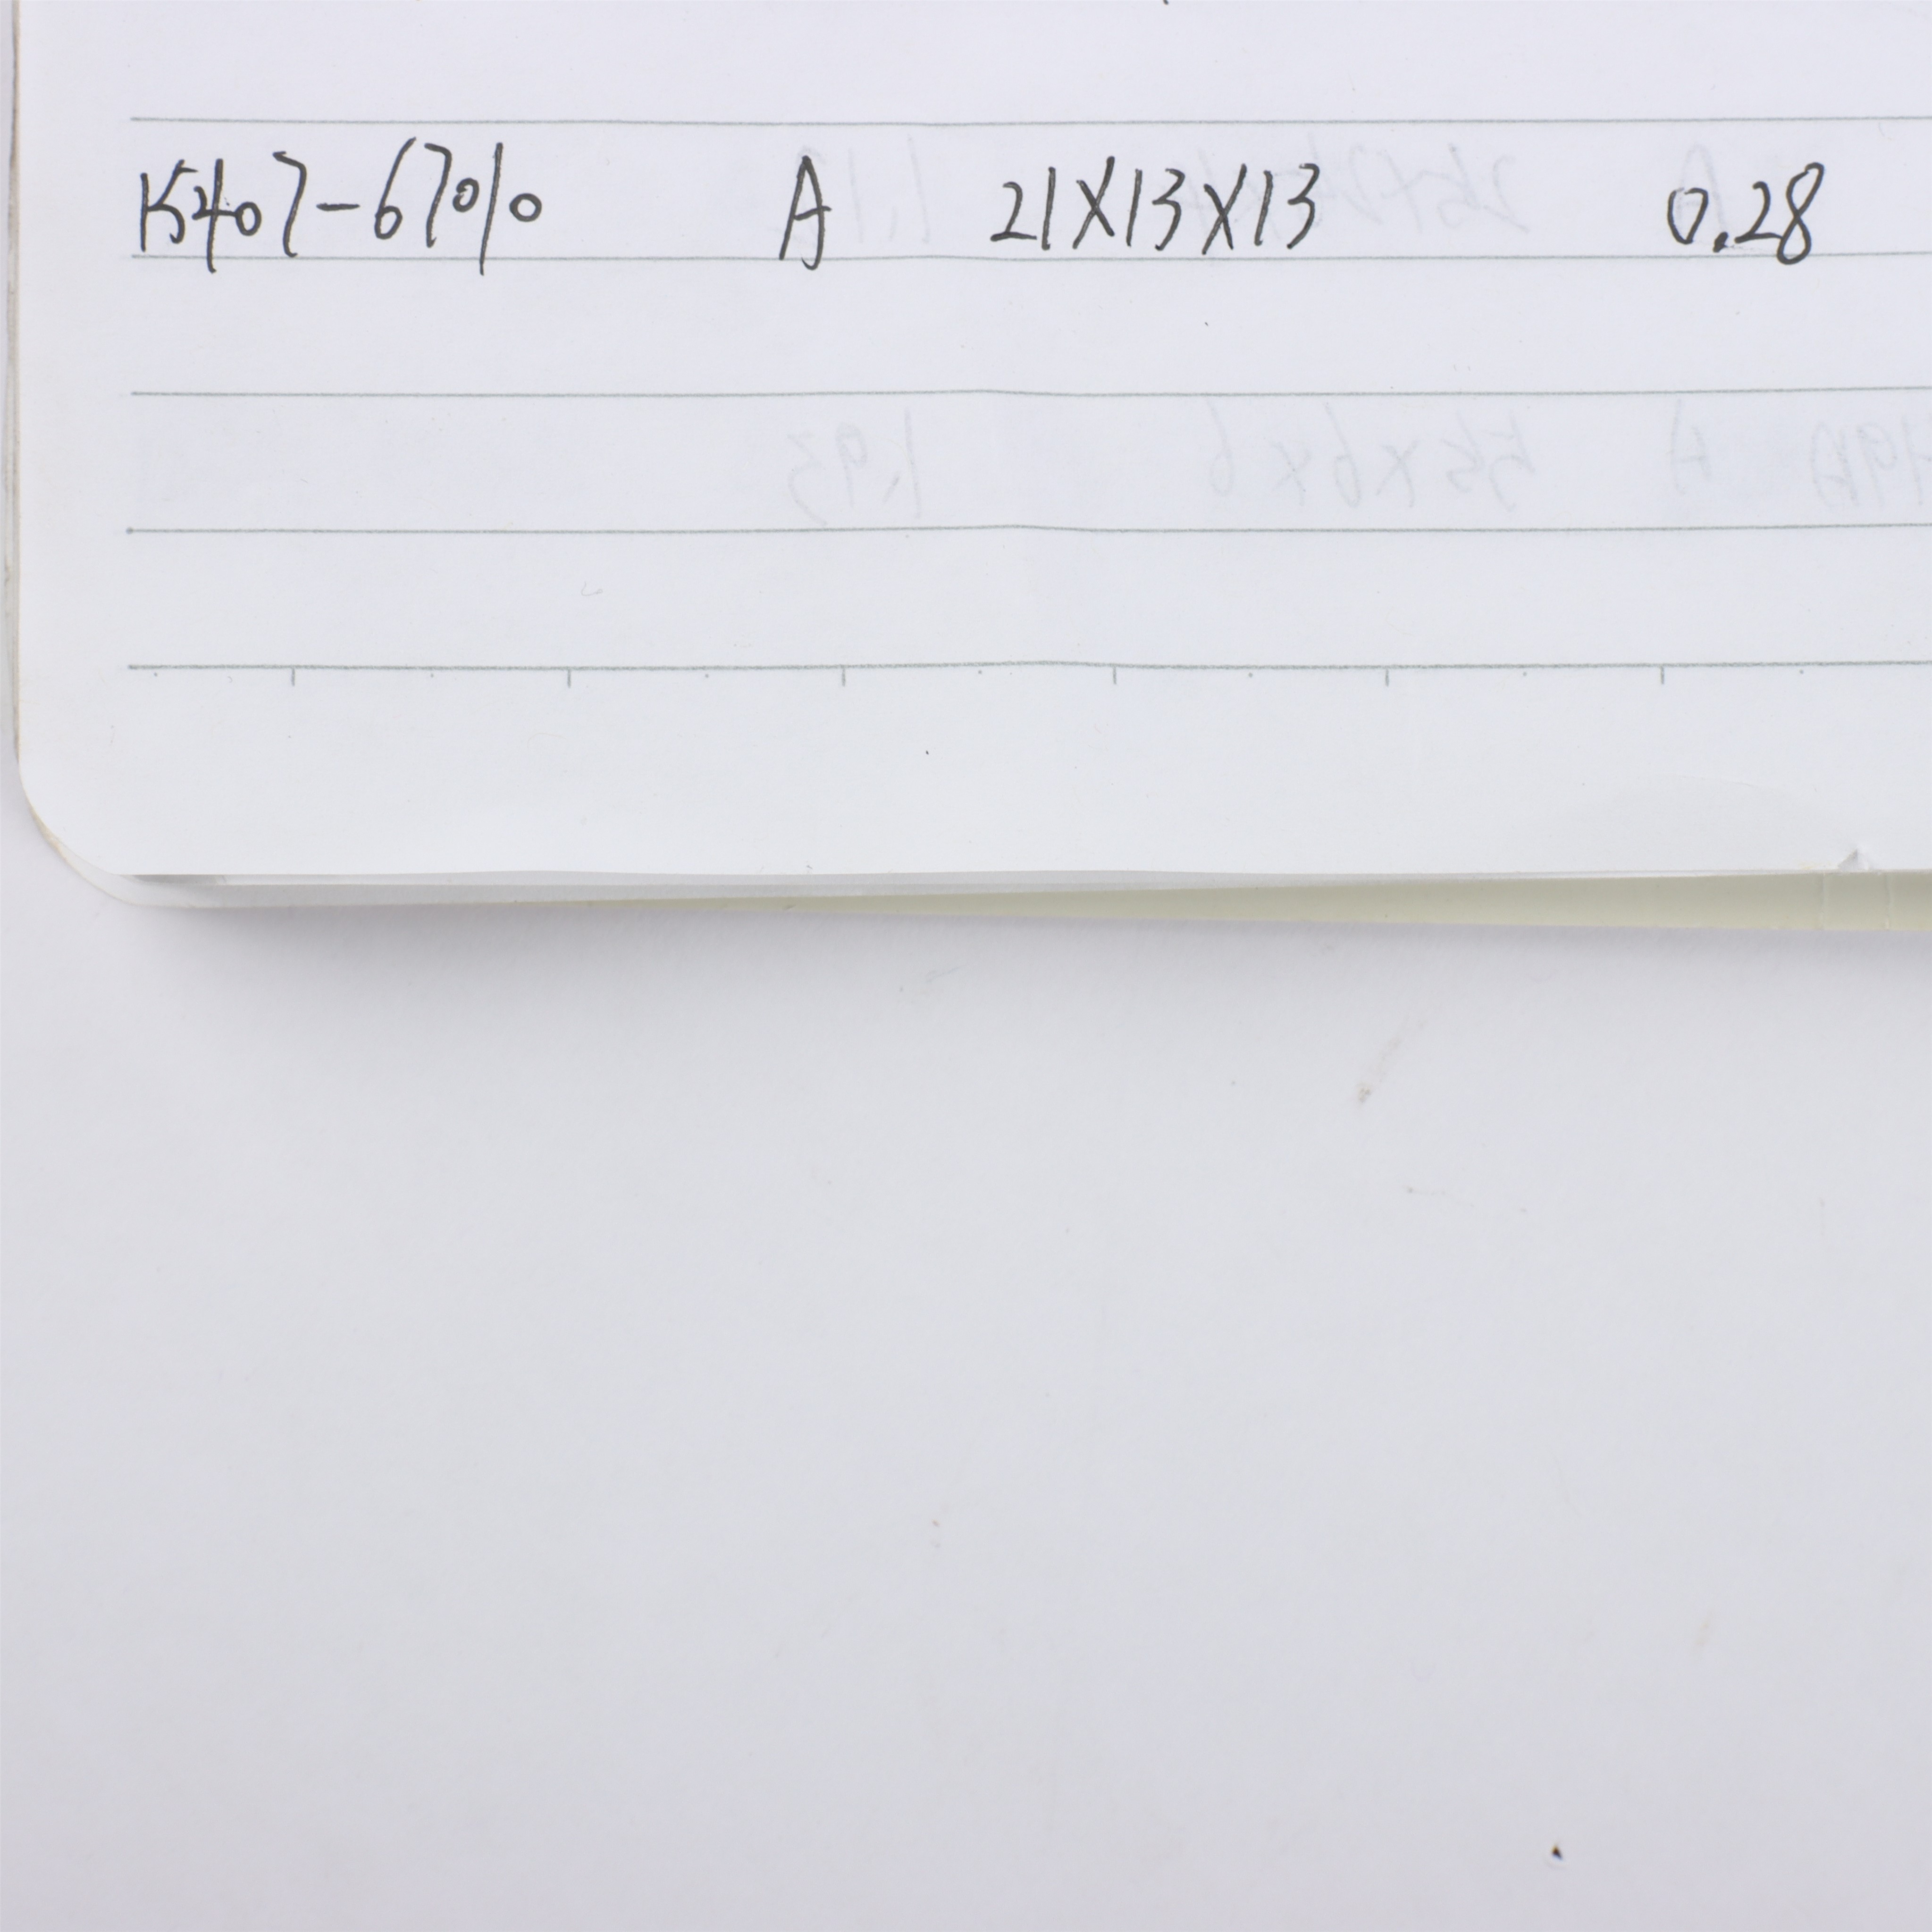 K407-67010 A 21X13X13 0.28